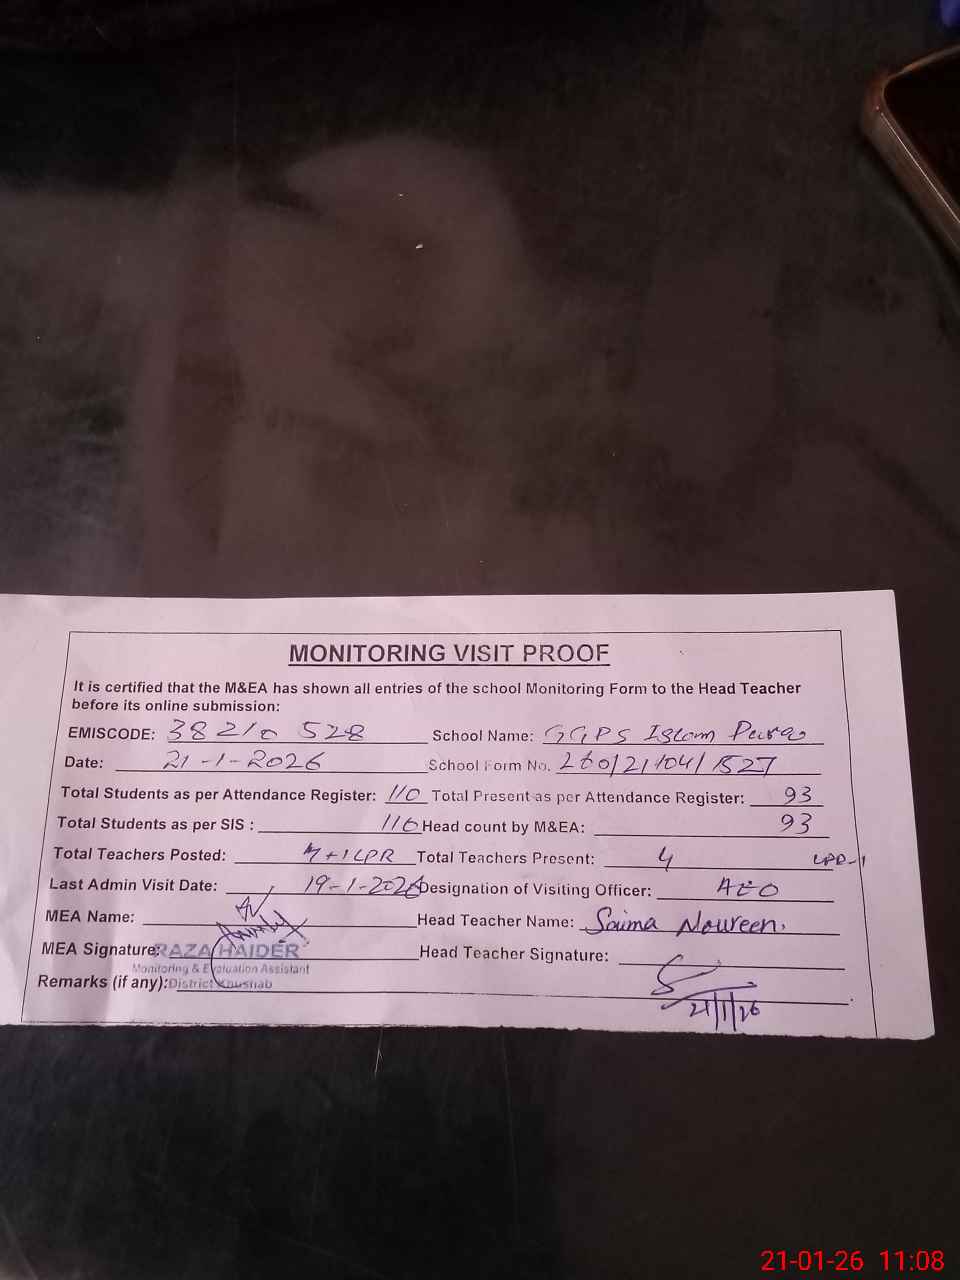 MONITORING VISIT PROOF
It is certified that the M&EA has shown all entries of the school Monitoring Form to the Head Teacher
before its online submission:
EMISCODE: 38210 528 School Name: GGPS Islam Pura
Date: 21-1-2026 School Form No. 260/21/104/1527
Total Students as per Attendance Register: 110 Total Present as per Attendance Register: 93
Total Students as per SIS : 110 Head count by M&EA: 93
Total Teachers Posted: +1 LPR Total Teachers Present: 4 LPR-1
Last Admin Visit Date: 19-1-2026 Designation of Visiting Officer: AEO
MEA Name: Head Teacher Name: Saima Noureen.
MEA Signature: RAZA HAIDER Head Teacher Signature:
Monitoring & Evaluation Assistant
Remarks (if any): District Khushab
21/1/26
21-01-26 11:08